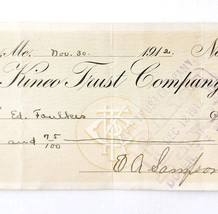 Me. Nov. 30. 1912. No
Kineo Trust Company
Ed. Faulkes
and 75/100
E A Sampson